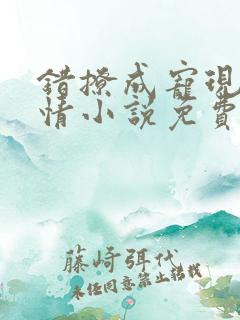 錯撩成寵現
情小說免費
藤崎弭代
未经同意禁止转载